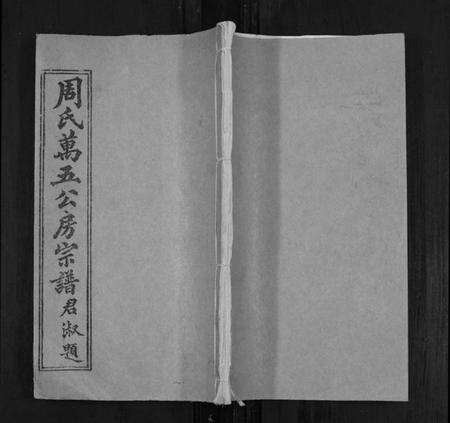 周氏萬五公房宗譜
君淑題